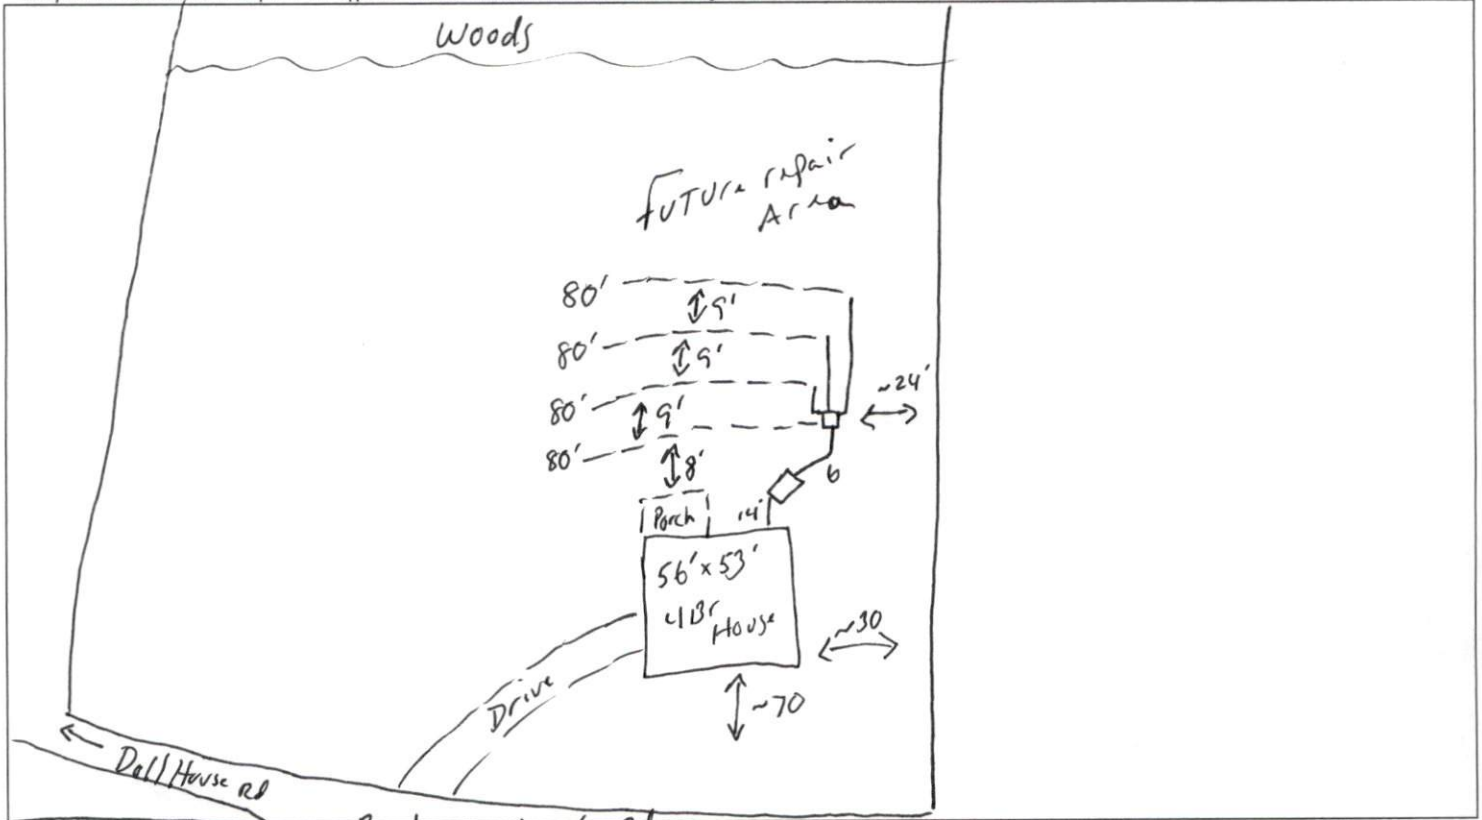 Woods
Future repair
Area
80'
9'
80'
9'
80'
~24'
9'
80'
8'
6
Porch
14'
56' x 53'
4Br
House
~30
Drive
~70
← Doll House Rd